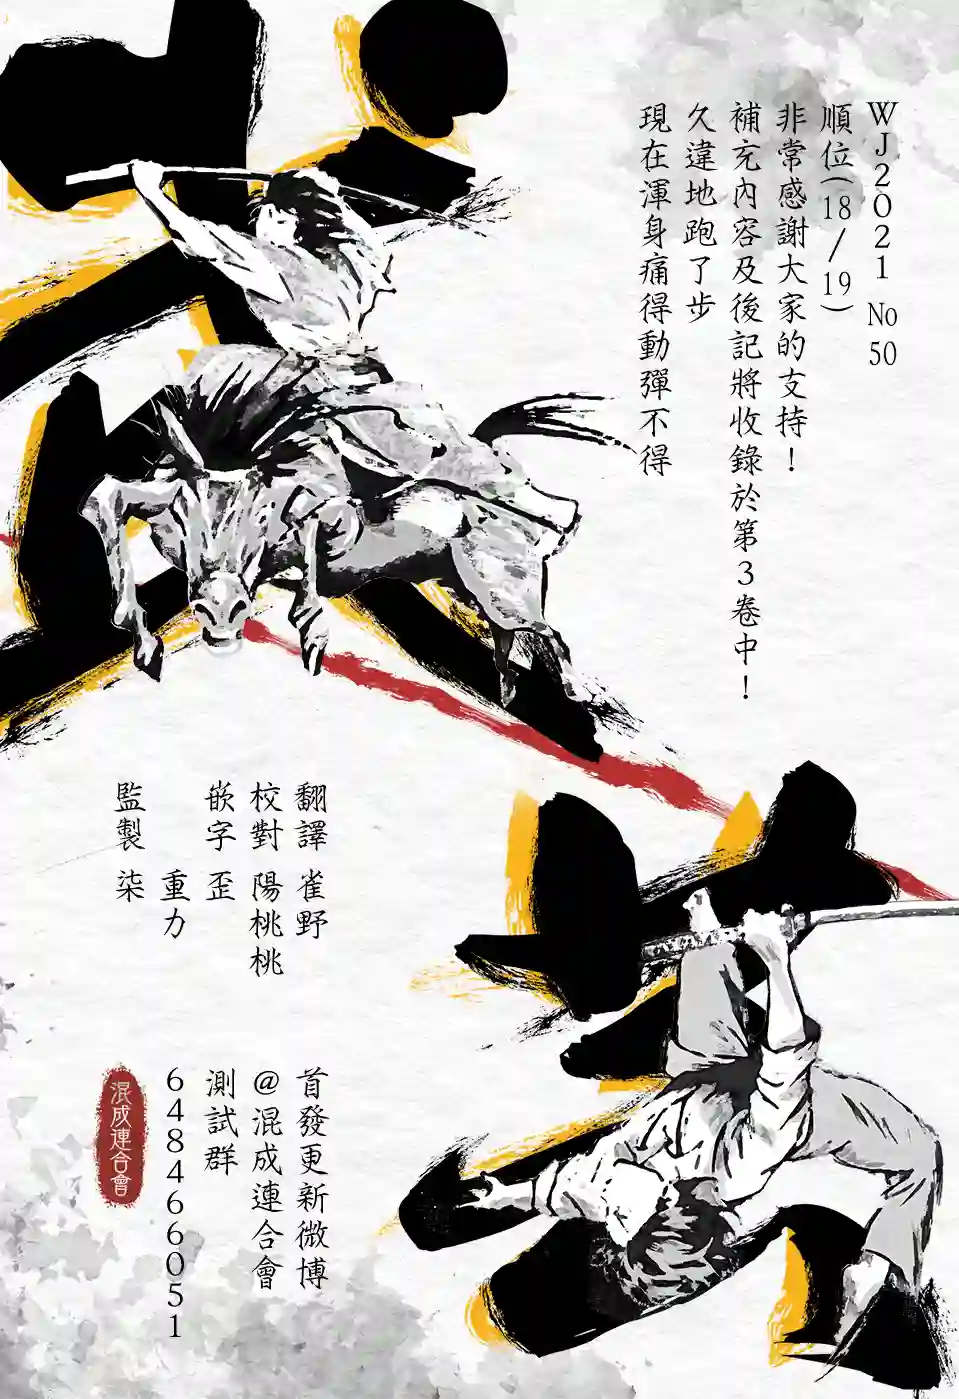 WJ2021 No50
順位(18/19)
非常感謝大家的支持！
補充內容及後記將收錄於第3卷中！
久違地跑了步
現在渾身痛得動彈不得
翻譯 雀野
校對 陽桃桃
嵌字 歪
重力
監製 柒
首發更新微博
@混成連合會
測試群
648466051
混成連合會